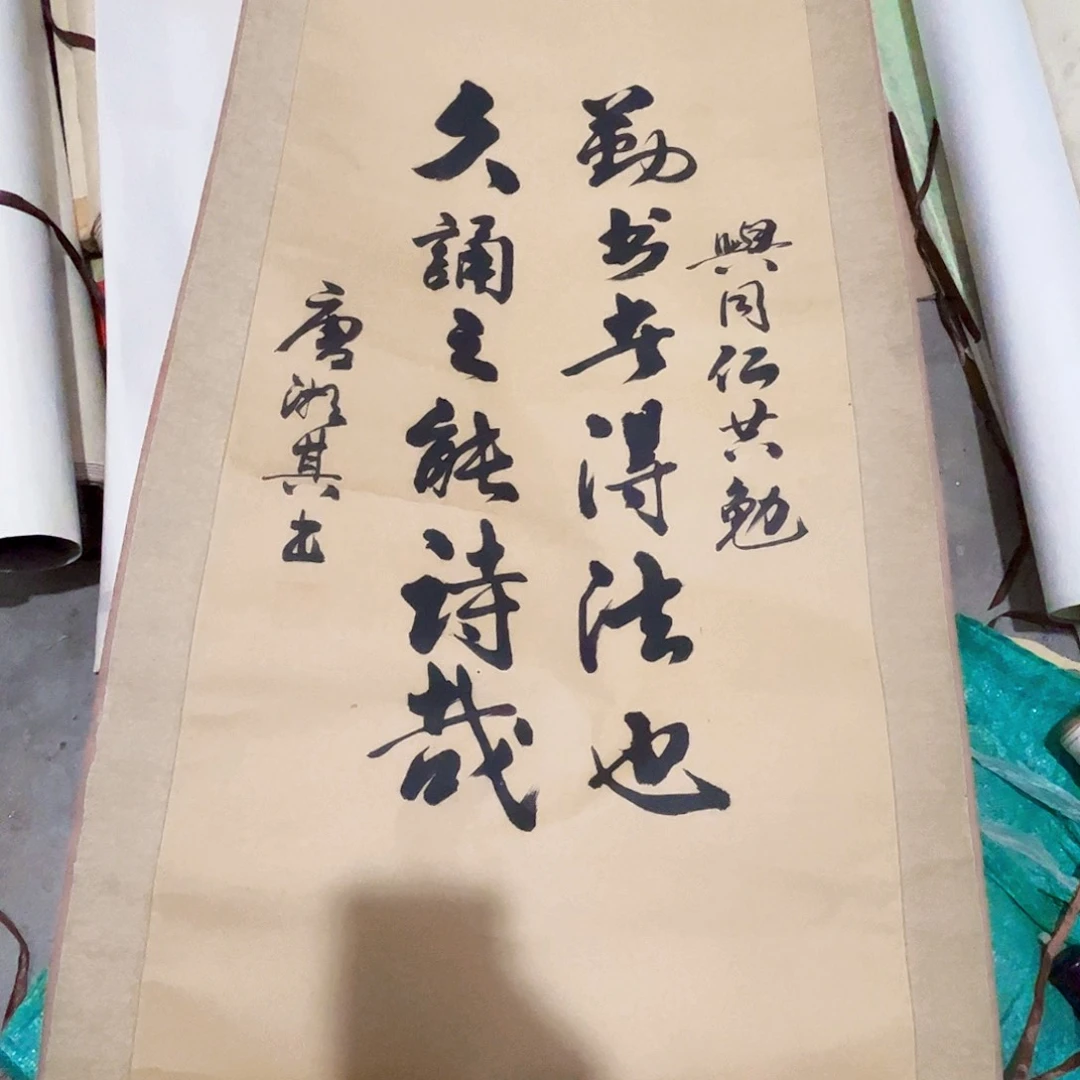 與同仁共勉
勤书者得法也
久誦之能诗哉
唐湘其书